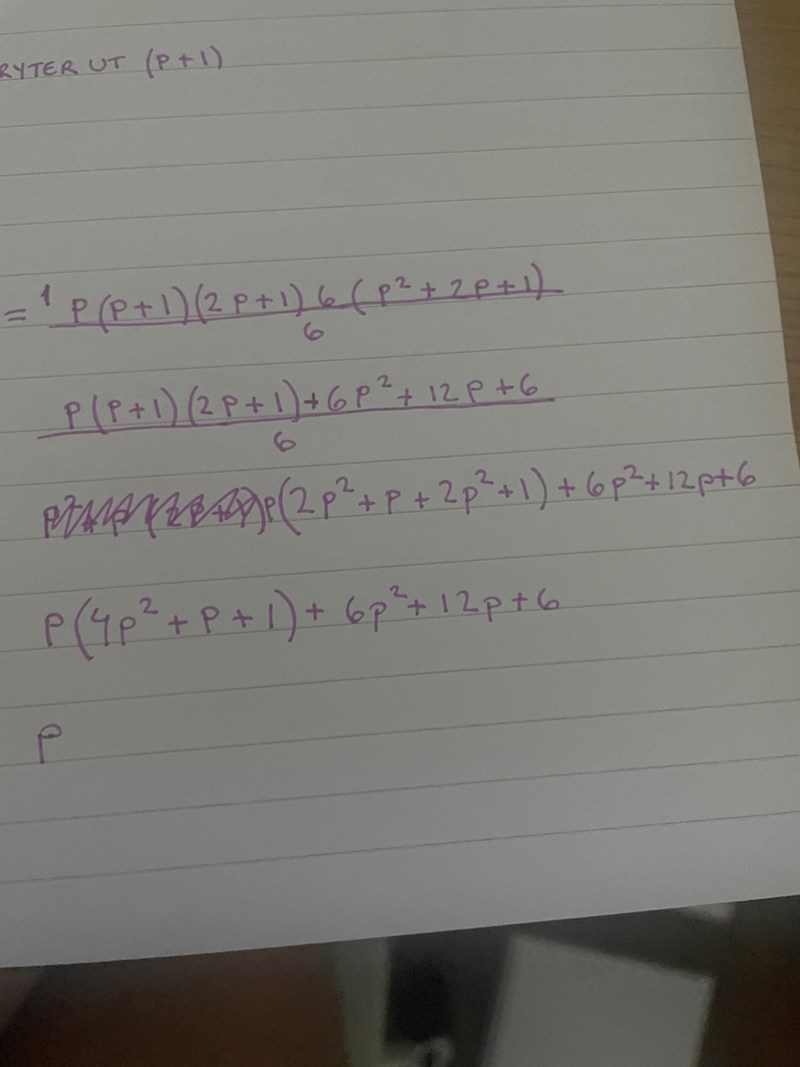 RYTER UT (P+1)
= 1 P(P+1)(2P+1) 6(P²+2P+1)
6
P(P+1)(2P+1)+6P²+12P+6
6
P(2P²+P+2P²+1)+6P²+12P+6
P(4P²+P+1)+6P²+12P+6
P